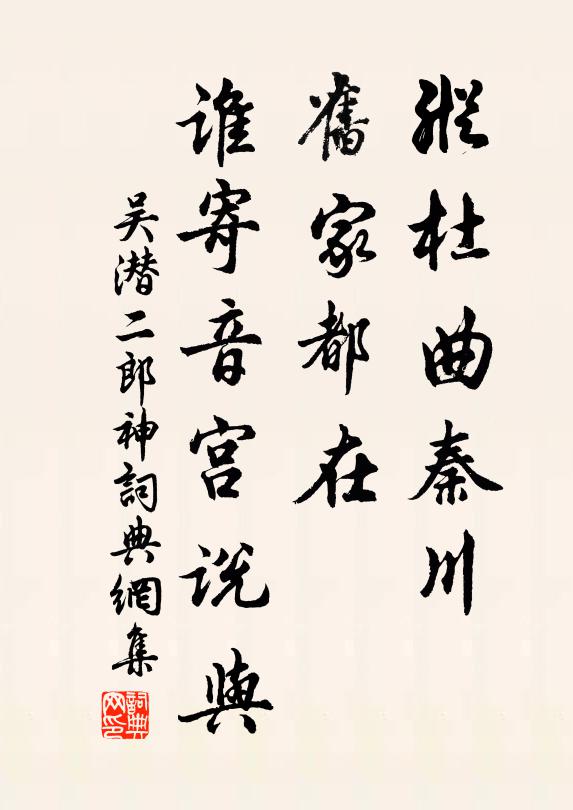 縱杜曲秦川
舊家都在
誰寄音宮說與
吴潜二郎神詞典網集
詞典网印